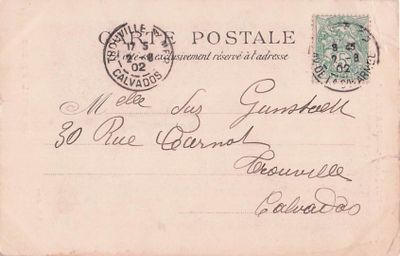 CARTE POSTALE
Ce côté exclusivement réservé à l'adresse
TROUVILLE S. MER
17 5
2 -8
02
CALVADOS
8 45
2 -8
02
Melle Suz
30 Rue Carnot
Trouville
Calvados